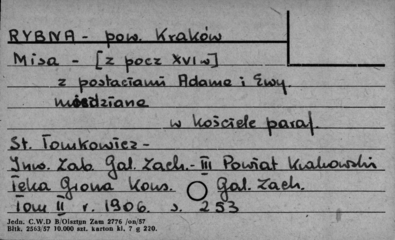 RYBNA - pow. Kraków
Misa - [z pocz XVI w]
z postaciami Adama i Ewy
miedziana
w kościele paraf.
St. Tomkowicz -
Inw. Zab. Gal. Zach. - III Powiat Krakowski
Teka Grona Kons. Gal. Zach.
Tom II r. 1906. s. 253
Jedn. C.W.D B/Olsztyn Zam 2776 /on/57
Bltk. 2563/57 10.000 szt. karton kl. 7 g 220.